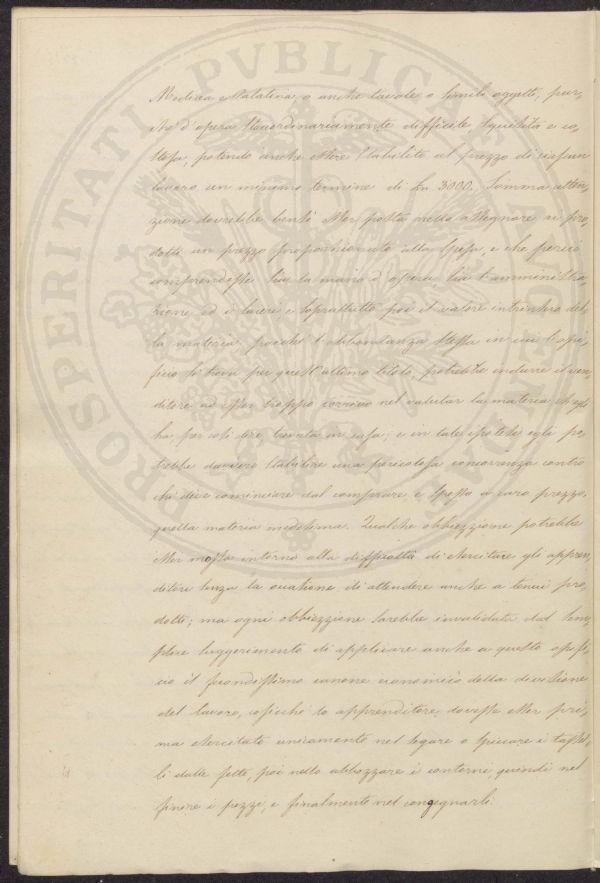 Medicea e Palatina, o anche tavole, o simili oggetti, pur-
chè d'opera straordinariamente difficile, squisita e co-
stosa, potendo anche essere stabilito al prezzo di ciascun
lavoro un minimo termine di Ln 3000. Somma atten-
zione dovrebbe bensì esser posta nello assegnare ai pro-
dotti un prezzo proporzionato alla spesa, e che perciò
comprendesse sia la mano d'opera, sia l'amministra-
zione ed i lucri e soprattutto poi il valore intrinseco del-
la materia, poichè l'abbondanza stessa in cui l'opi-
ficio si trova per quest'ultimo titolo, potrebbe indurre il ven-
ditore ad esser troppo corrivo nel valutar la materia ch'egli
ha per così dire trovata in casa; e in tale ipotesi egli po-
trebbe davvero stabilire una pericolosa concorrenza contro
chi deve cominciare dal comprare e spesso a caro prezzo,
quella materia medesima. Qualche obbiezzione potrebbe
esser mossa intorno alla difficoltà di esercitare gli appren-
ditori senza la occasione di attendere anche a tenui pro-
dotti; ma ogni obbiezzione sarebbe invalidata dal sem-
plice suggerimento di applicare anche a questo opifi-
cio il fecondissimo canone economico della divisione
del lavoro, cosicchè lo apprenditore dovesse esser pri-
ma esercitato unicamente nel segare o spiccare i tassel-
li dalle fette, poi nello abbozzare i contorni, quindi nel
finire i pezzi, e finalmente nel congegnarli.
PROSPERITATI PVBLICAE AVGENDAE